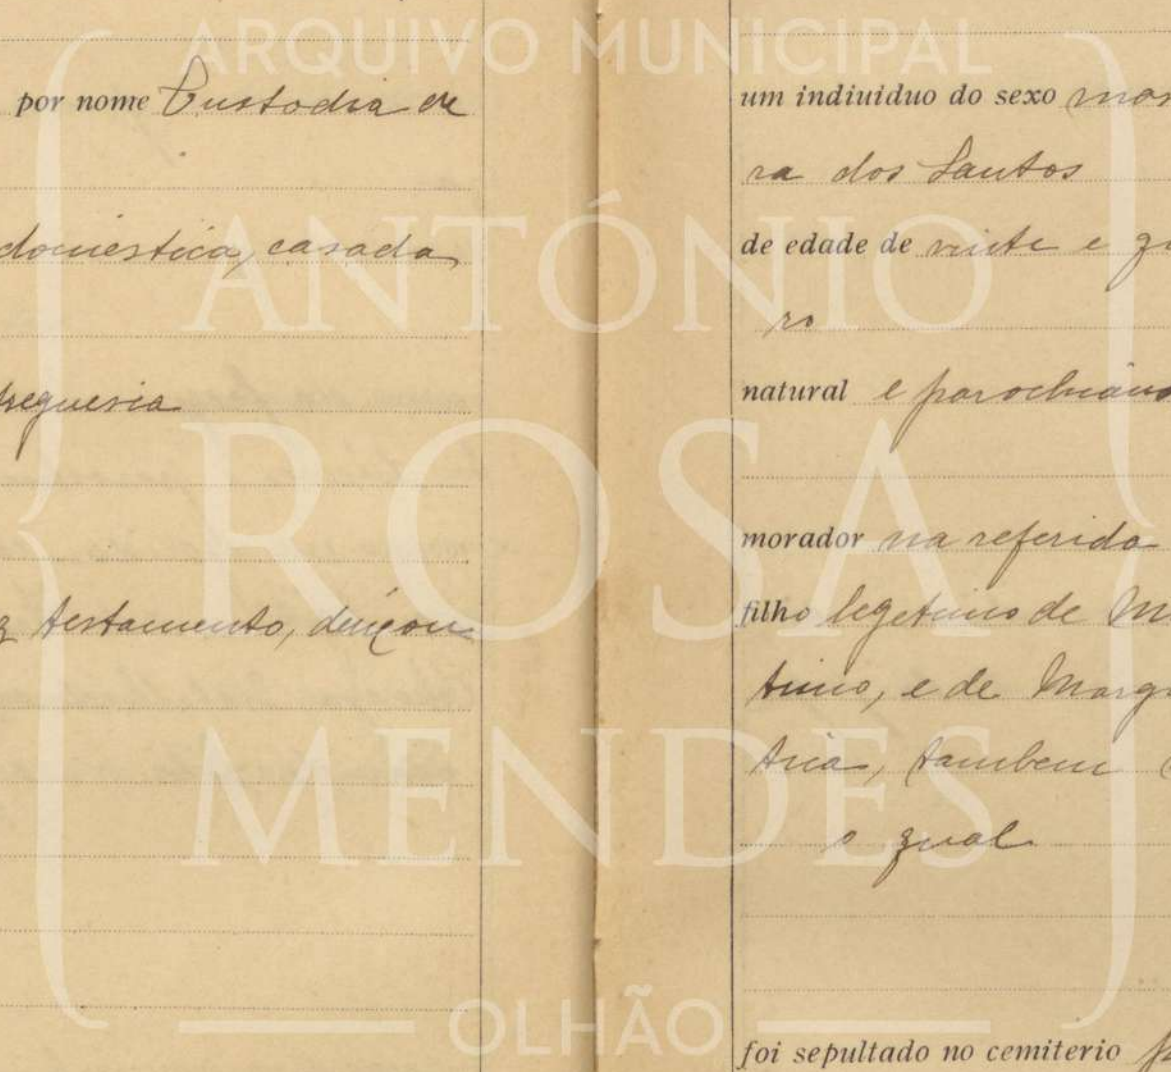 ARQUIVO MUNICIPAL
ANTÓNIO
ROSA
MENDES
OLHÃO
por nome Custodia de
domestica, casada
freguesia
testamento, deixou
um indiuiduo do sexo mas
ra dos Santos
de edade de vinte e qu
ro
natural e parochiano
morador na referida
filho legetimo de M
timo, e de Marg
tria, tambem
o qual
foi sepultado no cemiterio p